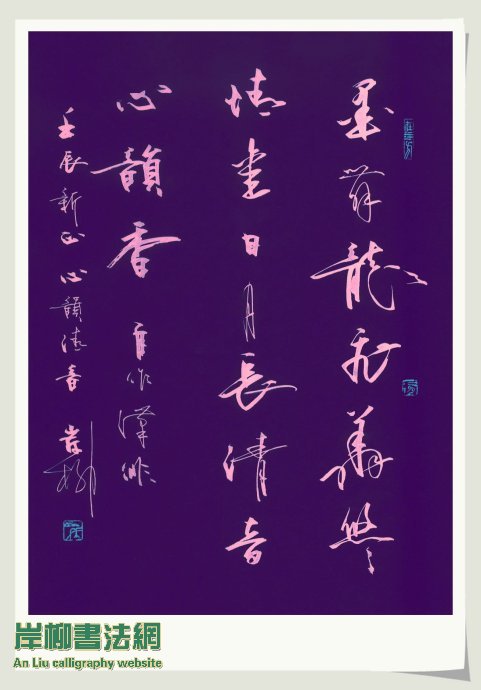 墨龍飛舞悠々
情日月長清音
心韻香 自作漢俳
壬辰新正心韻清音 岸柳
岸柳書法網
An Liu calligraphy website